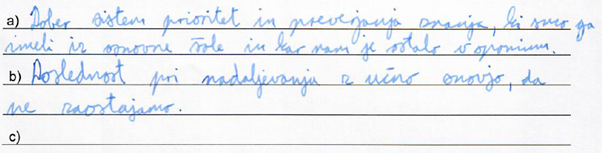 a) Dober sistem prioritet in preverjanja znanja, ki smo ga
imeli iz osnovne šole in kar nam je ostalo v spominu.
b) Doslednost pri nadaljevanju z učno snovjo, da
ne zaostajamo.
c)